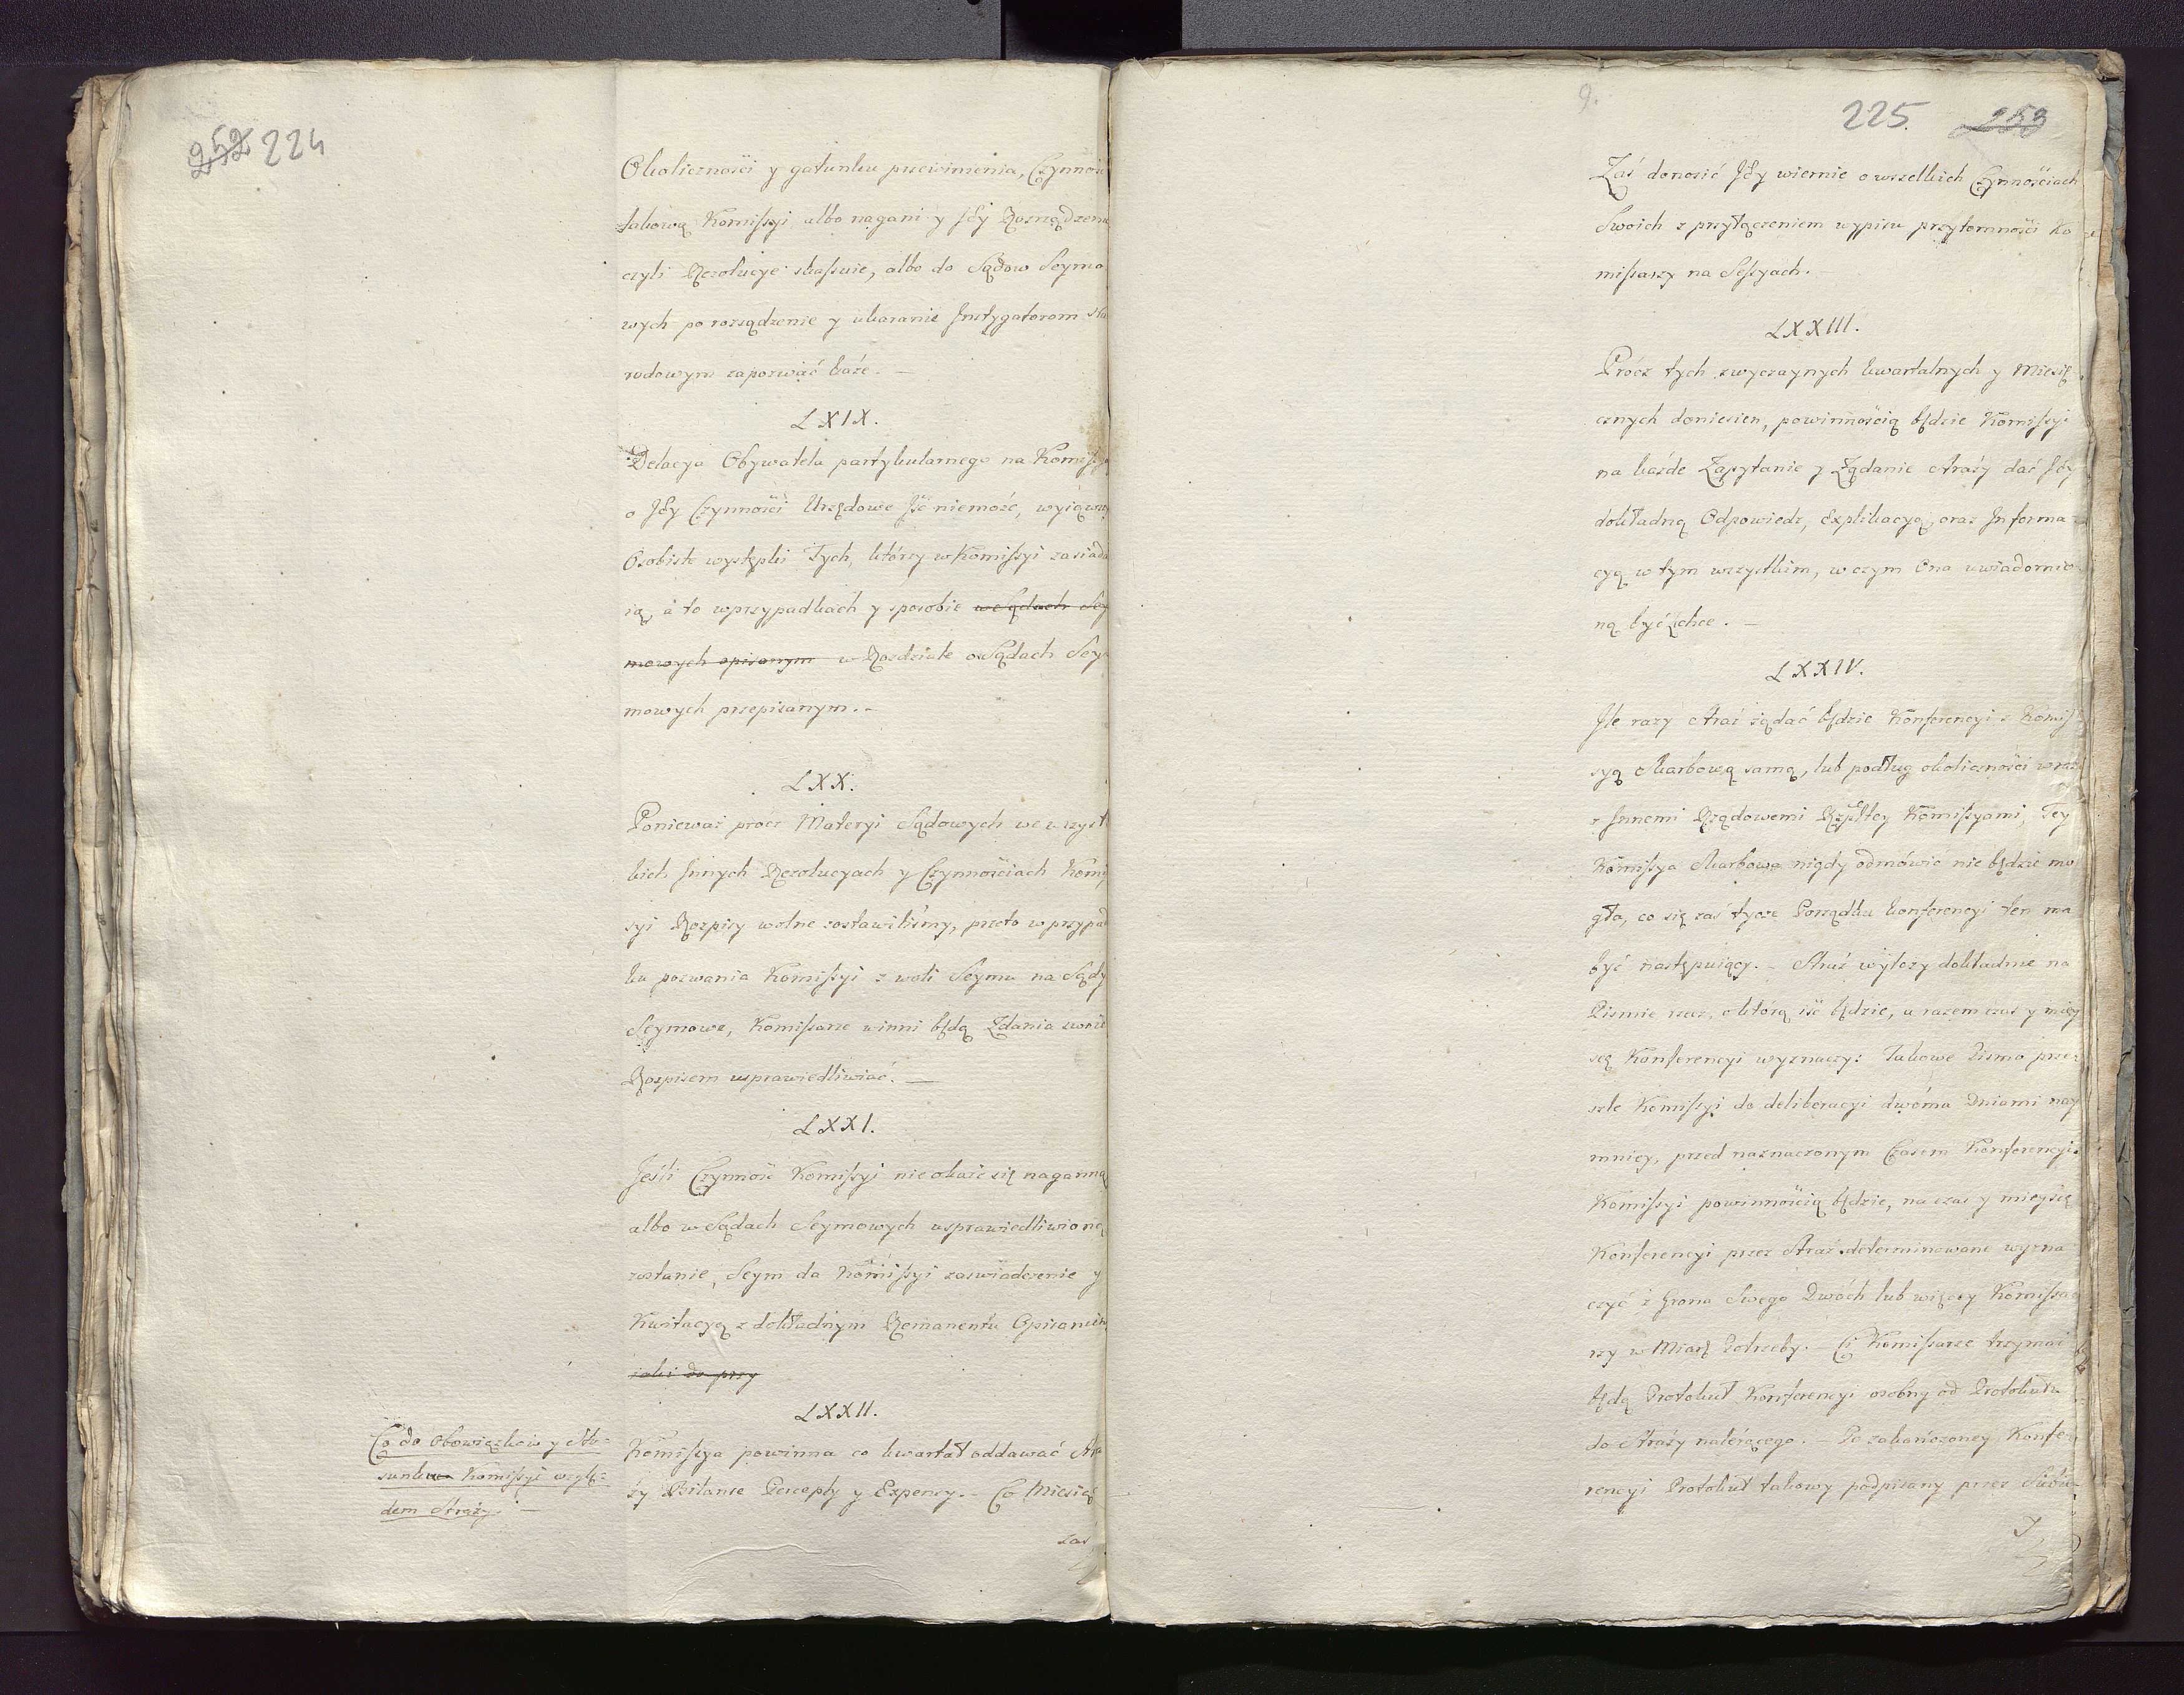 252 224
Okolicznosci y gatunku przewinienia, Czynnosc
takową Komissyi albo nagani y Jey Rozrządzenie
czyli Rezolucye skassuie, albo do Sądow Seymo
wych po rozsądzenie y ukaranie Instygatorom Na
rodowym zapozwać każe. —
LXIX.
Delacya Obywatela partykularnego na Komissyę
o Jey Czynnosci Urzędowe Jść niemoże, wyiąwszy
Osobiste występki Tych, którzy w Komissyi zasiada
ią, a to w przypadkach y sposobie we Sądach Sey
mowych opisanym w Rozdziale o Sądach Sey
mowych przepisanym. –
LXX.
Ponieważ procz Materyi Sądowych we wszyst
kich Innych Rezolucyach y Czynnosciach Komis
syi Rozpisy wolne zostawilismy, przeto w przypad
ku pozwania Komissyi z woli Seymu na Sądy
Seymowe, Komissarze winni będą Zdania swoie
Rozpisem usprawiedliwiać. —
LXXI.
Jesli Czynnosc Komissyi nie okaże się naganną
albo w Sądach Seymowych usprawiedliwioną
zostanie, Seym da Komissyi zaswiadczenie y
Kwitacyą z dokładnym Remanentu Opisaniem
iaki do przy
LXXII.
Co do Obowiązkow y Sto-
sunkow Komissyi wzglę-
dem Straży. —
Komissya powinna co kwartał oddawać Stra
ży Bilanse Percepty y Expensy. – Co Miesiąc
zas
9.
225. 253
Zaś donosić Jey wiernie o wszelkich Czynnościach
Swoich z przyłączeniem wypisu przytomności Ko
missarzy na Sessyach.
LXXIII.
Prócz tych zwyczaynych kwartalnych y Miesię
cznych doniesien, powinnością będzie Komissyi
na każde Zapytanie y Żądanie Straży dać Jey
dokładną Odpowiedz, Explikacyą, oraz Informa
cyą w tym wszystkim, w czym Ona uwiadomio
ną być zechce. —
LXXIV.
Jle razy Straż żądać będzie Konferencyi z Komis
syą Skarbową samą, lub podług okoliczności wraz
z Innemi Rządowemi Rzpltey Komissyami, Tey
Komissya Skarbowa nigdy odmówić nie będzie mo
gła, co się zaś tycze Porządku konferencyi ten ma
być następuiący. – Straż wyłoży dokładnie na
Pismie rzecz, o którą iść będzie, a razem czas y miey
sce Konferencyi wyznaczy: Takowe Pismo prze
szle Komissyi do deliberacyi dwóma Dniami nay
mniey, przed naznaczonym Czasem Konferencyi.
Komissyi powinnością będzie, na czas y mieysce
Konferencyi przez Straż determinowane wyzna
czyć z Grona Swego Dwóch lub więcey Komissa
rzy w Miarę Potrzeby. – Ci Komissarze trzymać
będą Protokuł Konferencyi osobny od Protokułu
do Straży należącego. – Po zakończoney Konfe
rencyi Protokuł takowy podpisany przez